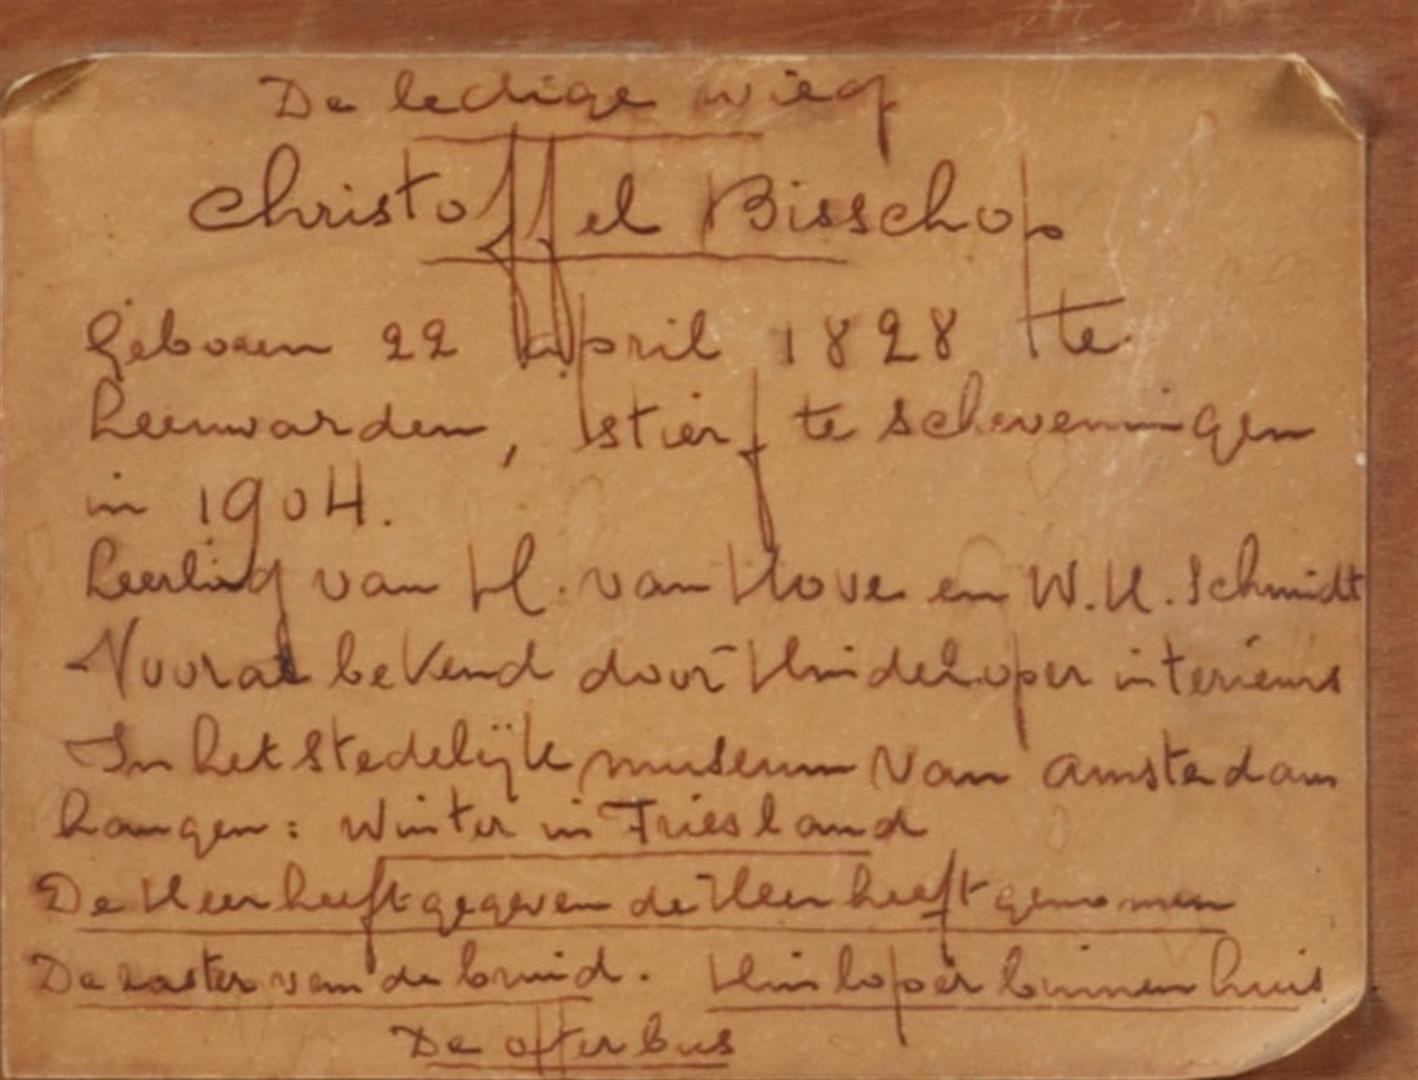 De ledige wieg
Christoffel Bisschop
Geboren 22 april 1828 te
Leeuwarden, stierf te scheveningen
in 1904.
Leerling van H. van Hove en W.H. Schmidt
Vooral bekend door Hindelooper interieurs
In het stedelijk museum van amsterdam
hangen: Winter in Friesland
De Heer heeft gegeven de Heer heeft genomen
De van de bruid. Hinloper binnenhuis
De offerbus